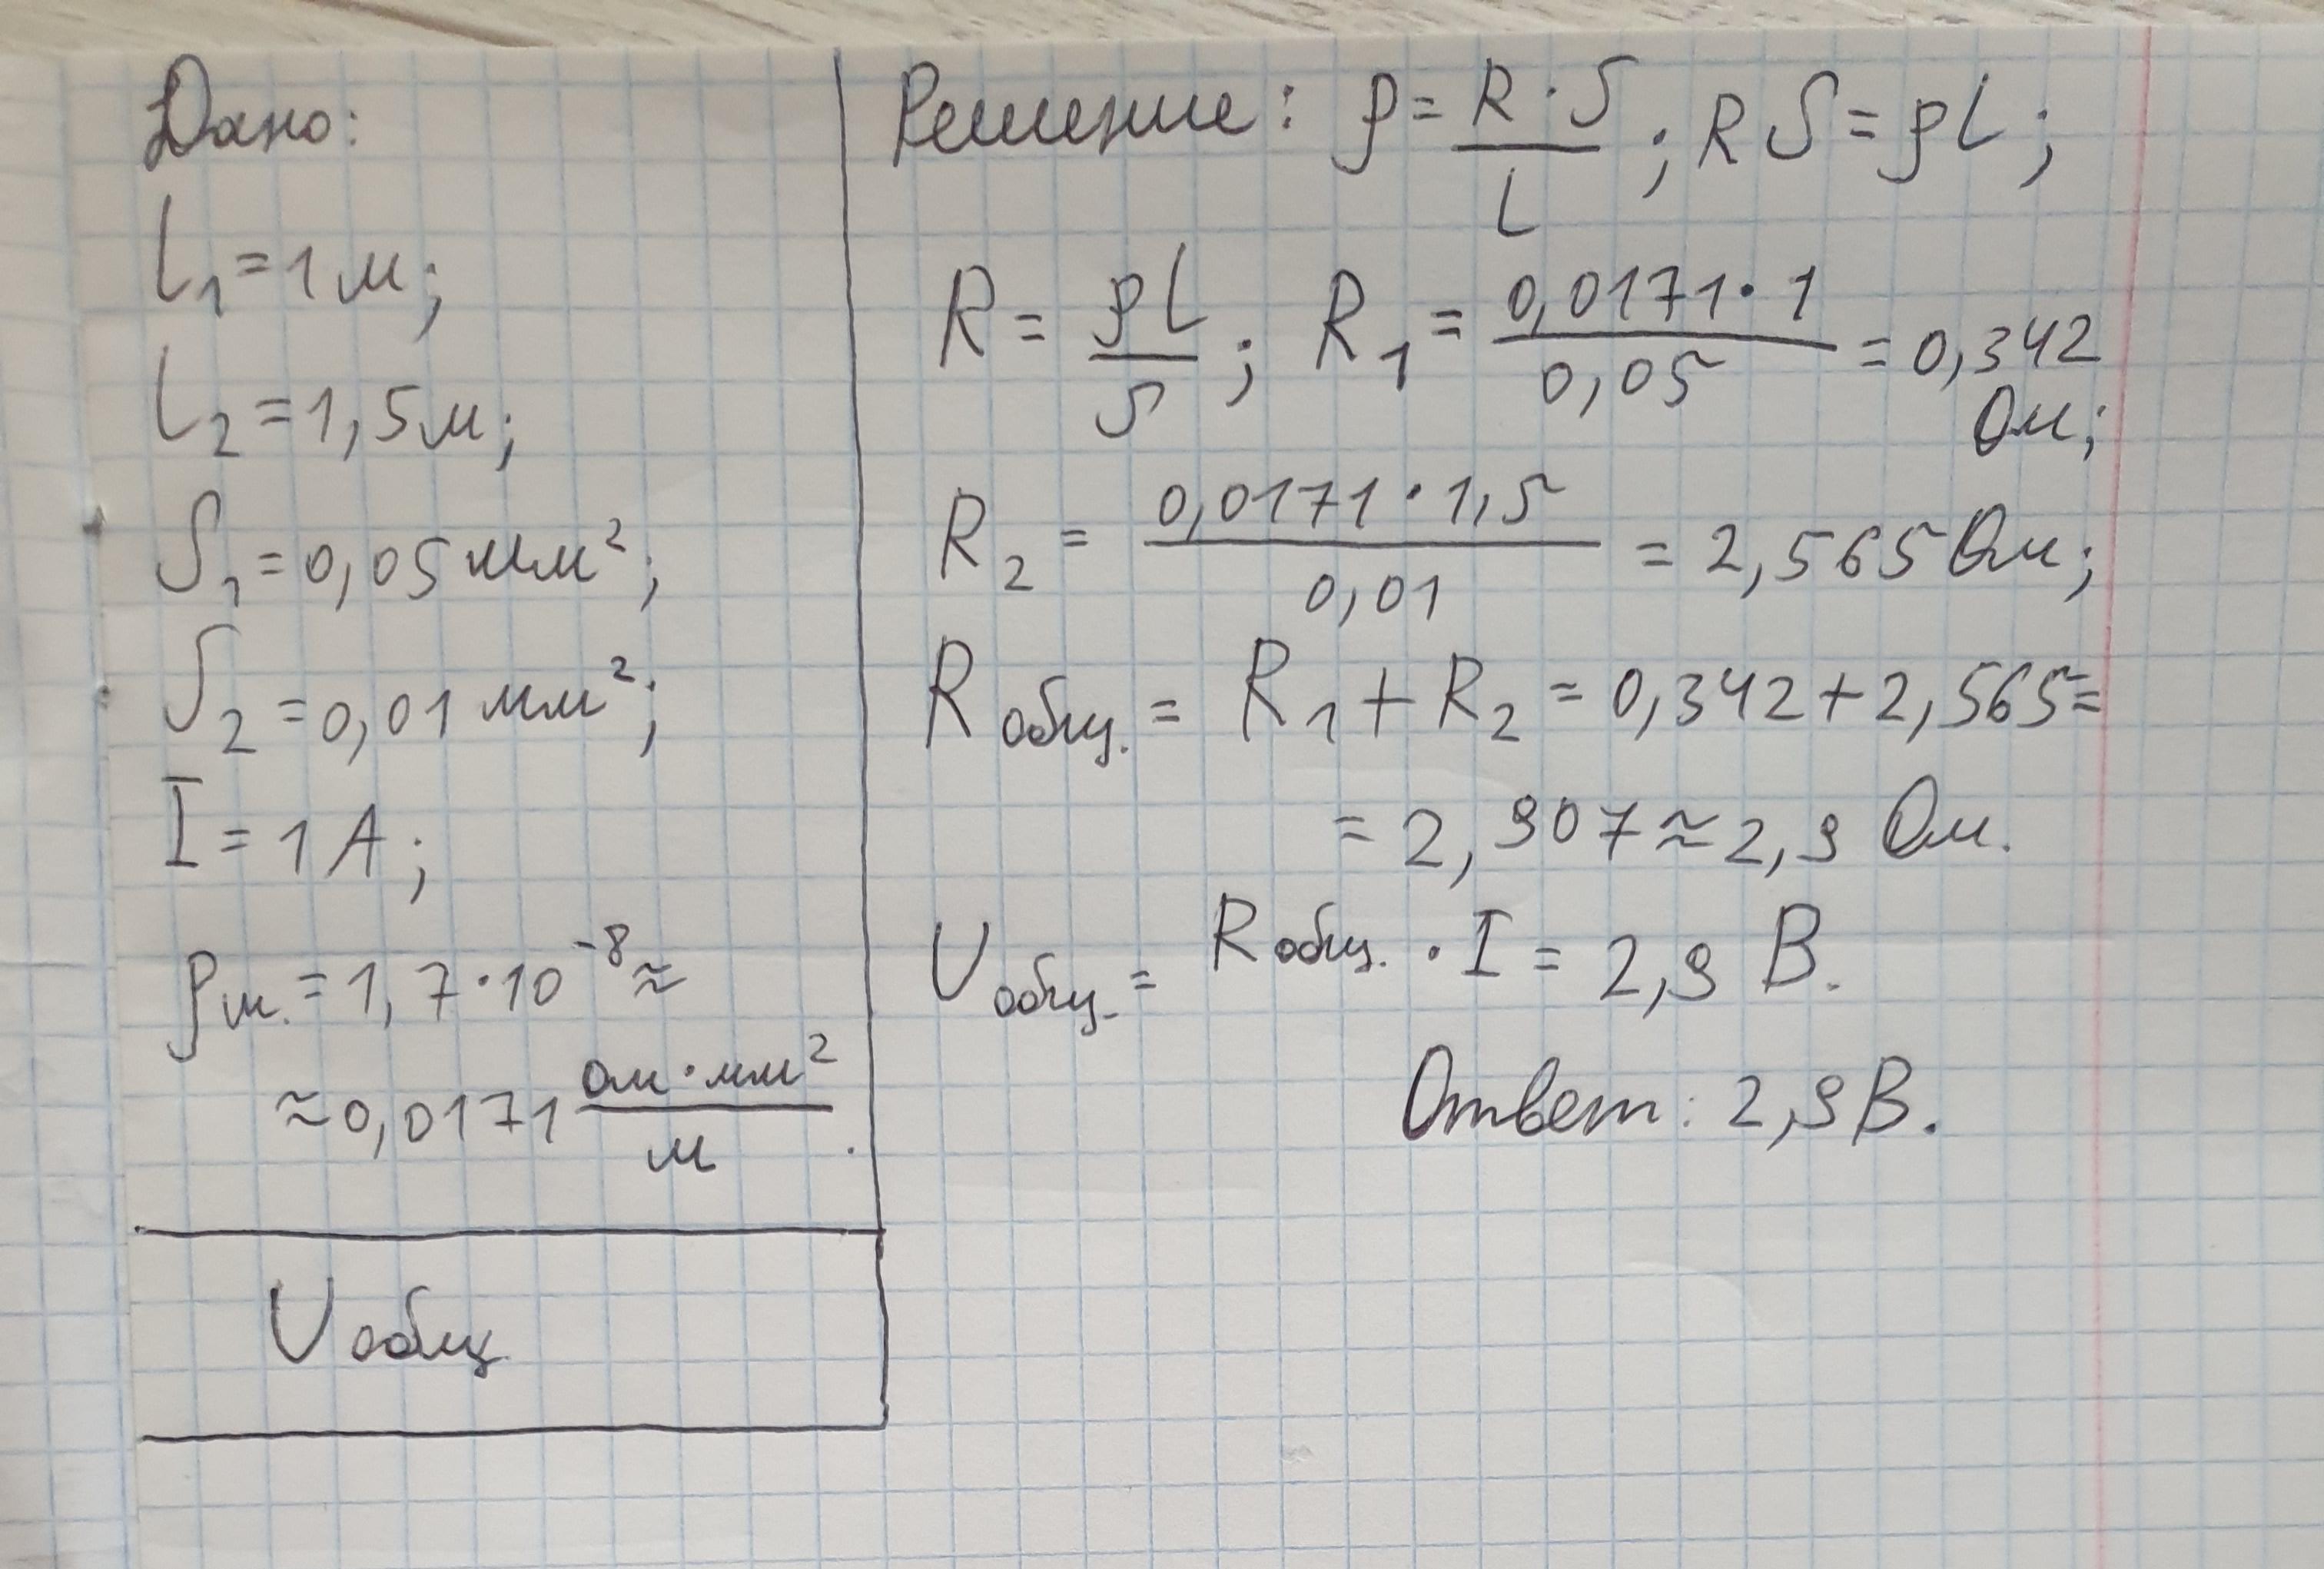 Дано:
L₁ = 1 м;
L₂ = 1,5 м;
S₁ = 0,05 мм²;
S₂ = 0,01 мм²;
I = 1 А;
ρм. = 1,7 · 10⁻⁸ ≈
≈ 0,0171 Ом · мм² / м.
Uобщ
Решение: ρ = R · S / L; R S = ρL;
R = ρL / S; R₁ = 0,0171 · 1 / 0,05 = 0,342
Ом;
R₂ = 0,0171 · 1,5 / 0,01 = 2,565 Ом;
Rобщ. = R₁ + R₂ = 0,342 + 2,565 =
= 2,907 ≈ 2,9 Ом.
Uобщ. = Rобщ. · I = 2,9 В.
Ответ: 2,9 В.